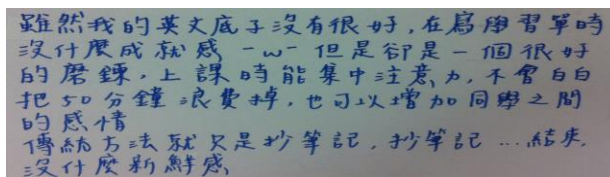 雖然我的英文底子沒有很好,在寫學習單時
沒什麼成就感 -w- 但是卻是一個很好
的磨鍊,上課時能集中注意力,不會白白
把50分鐘浪費掉,也可以增加同學之間
的感情
傳統方法就只是抄筆記,抄筆記...結束,
沒什麼新鮮感